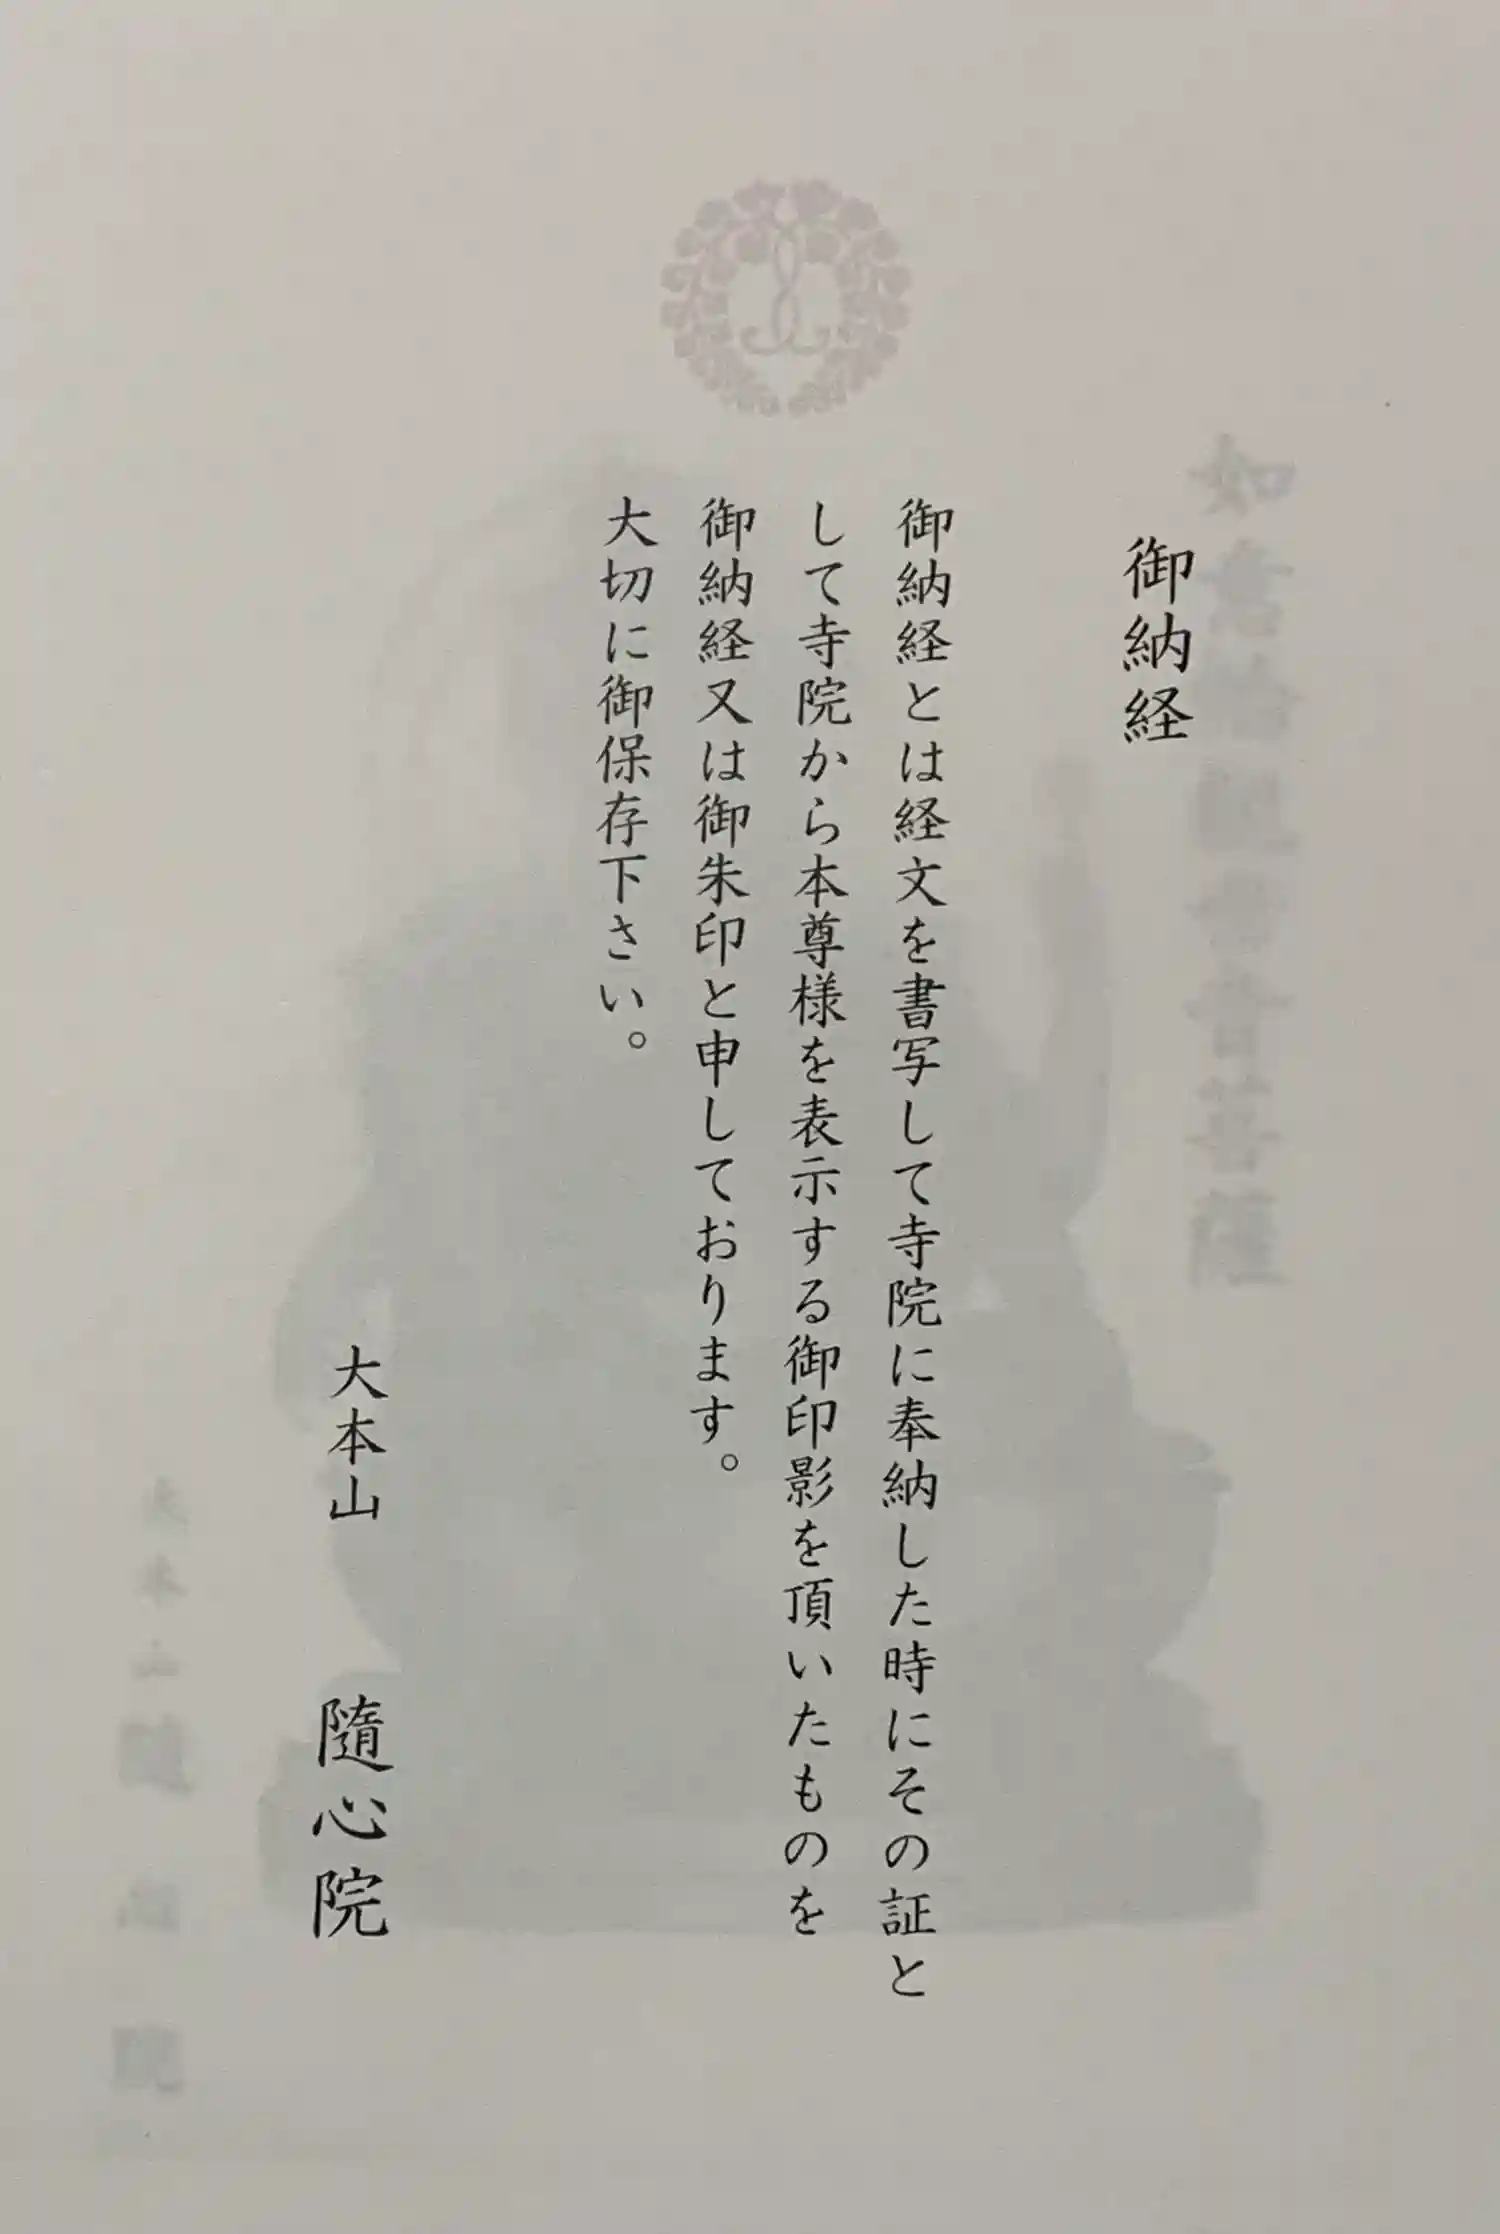 御納経
御納経とは経文を書写して寺院に奉納した時にその証と
して寺院から本尊様を表示する御印影を頂いたものを
御納経又は御朱印と申しております。
大切に御保存下さい。
大本山 隨心院
如意輪観世音菩薩
大本山 隨心院